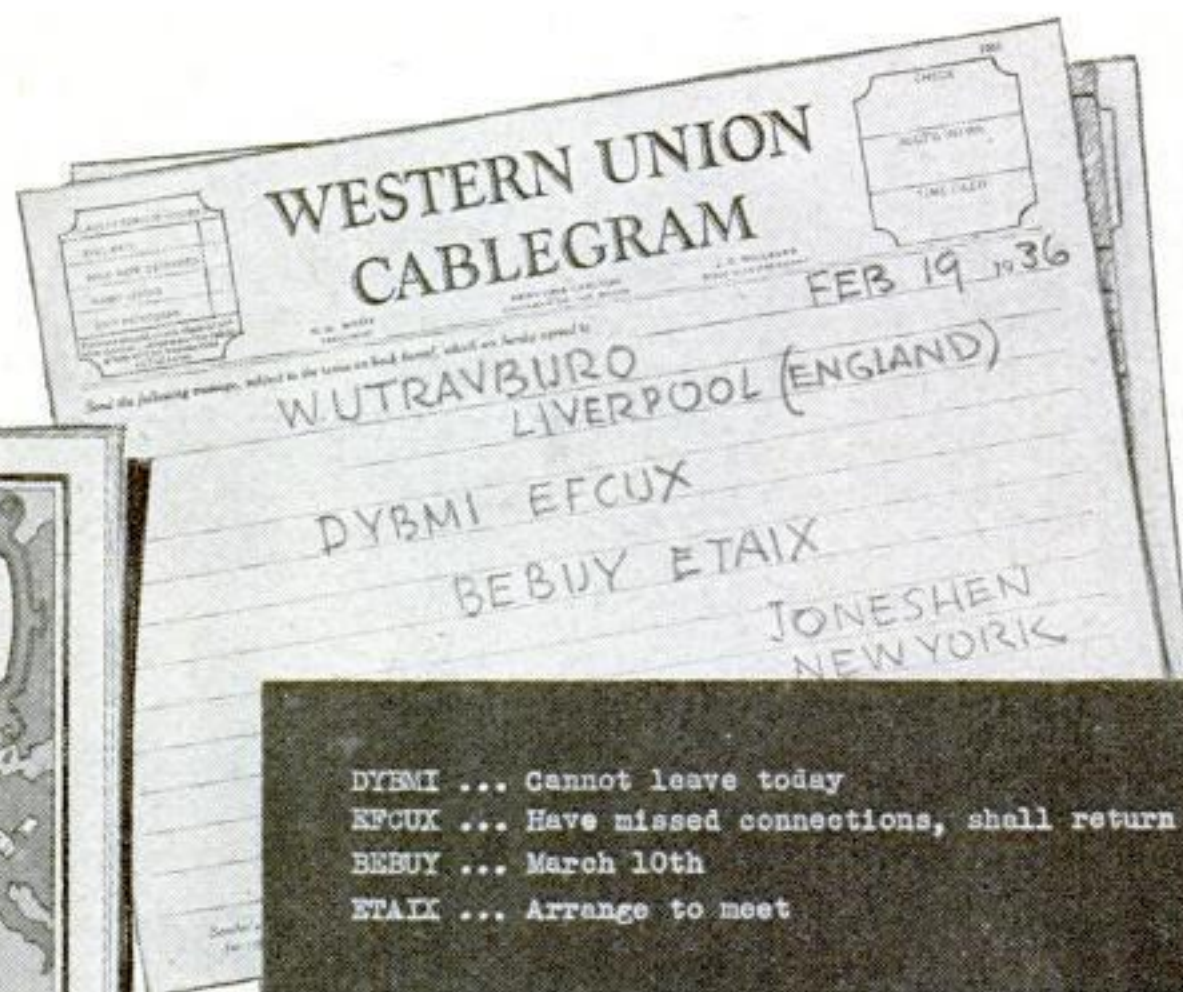 CHECK
TIME FILED
WESTERN UNION
CABLEGRAM
FEB 19 1936
Send the following message, subject to the terms on back hereof, which are hereby agreed to
WUTRAVBURO
LIVERPOOL (ENGLAND)
DYBMI EFCUX
BEBUY ETAIX
JONESHEN
NEW YORK
DYBMI ... Cannot leave today
EFCUX ... Have missed connections, shall return
BEBUY ... March 10th
ETAIX ... Arrange to meet